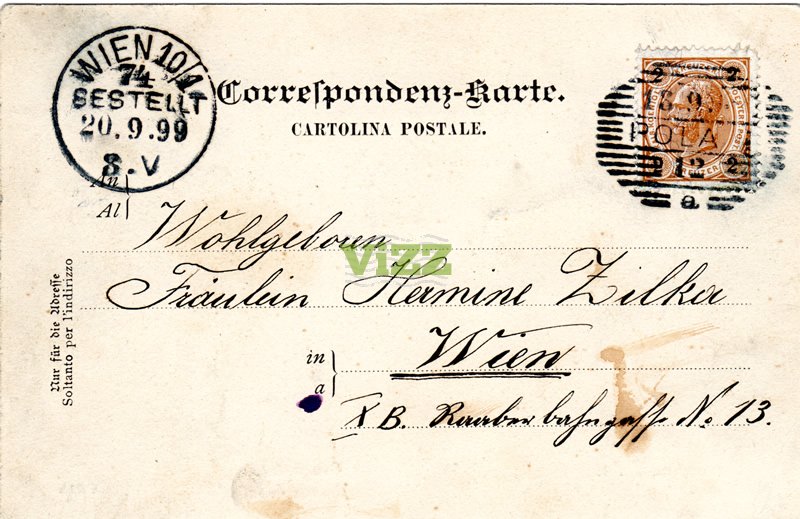 WIEN 10/1
74
BESTELLT
20.9.99
8.V
Correſpondenz-Karte.
CARTOLINA POSTALE.
2 KREUZER 2
POLA
12
a
An
Al
Wohlgeboren
ViZZ
Fräulein Hermine Zilka
in
a
Wien
X B. Raaber bahngasse No 13.
Nur für die Adreſſe
Soltanto per l'indirizzo